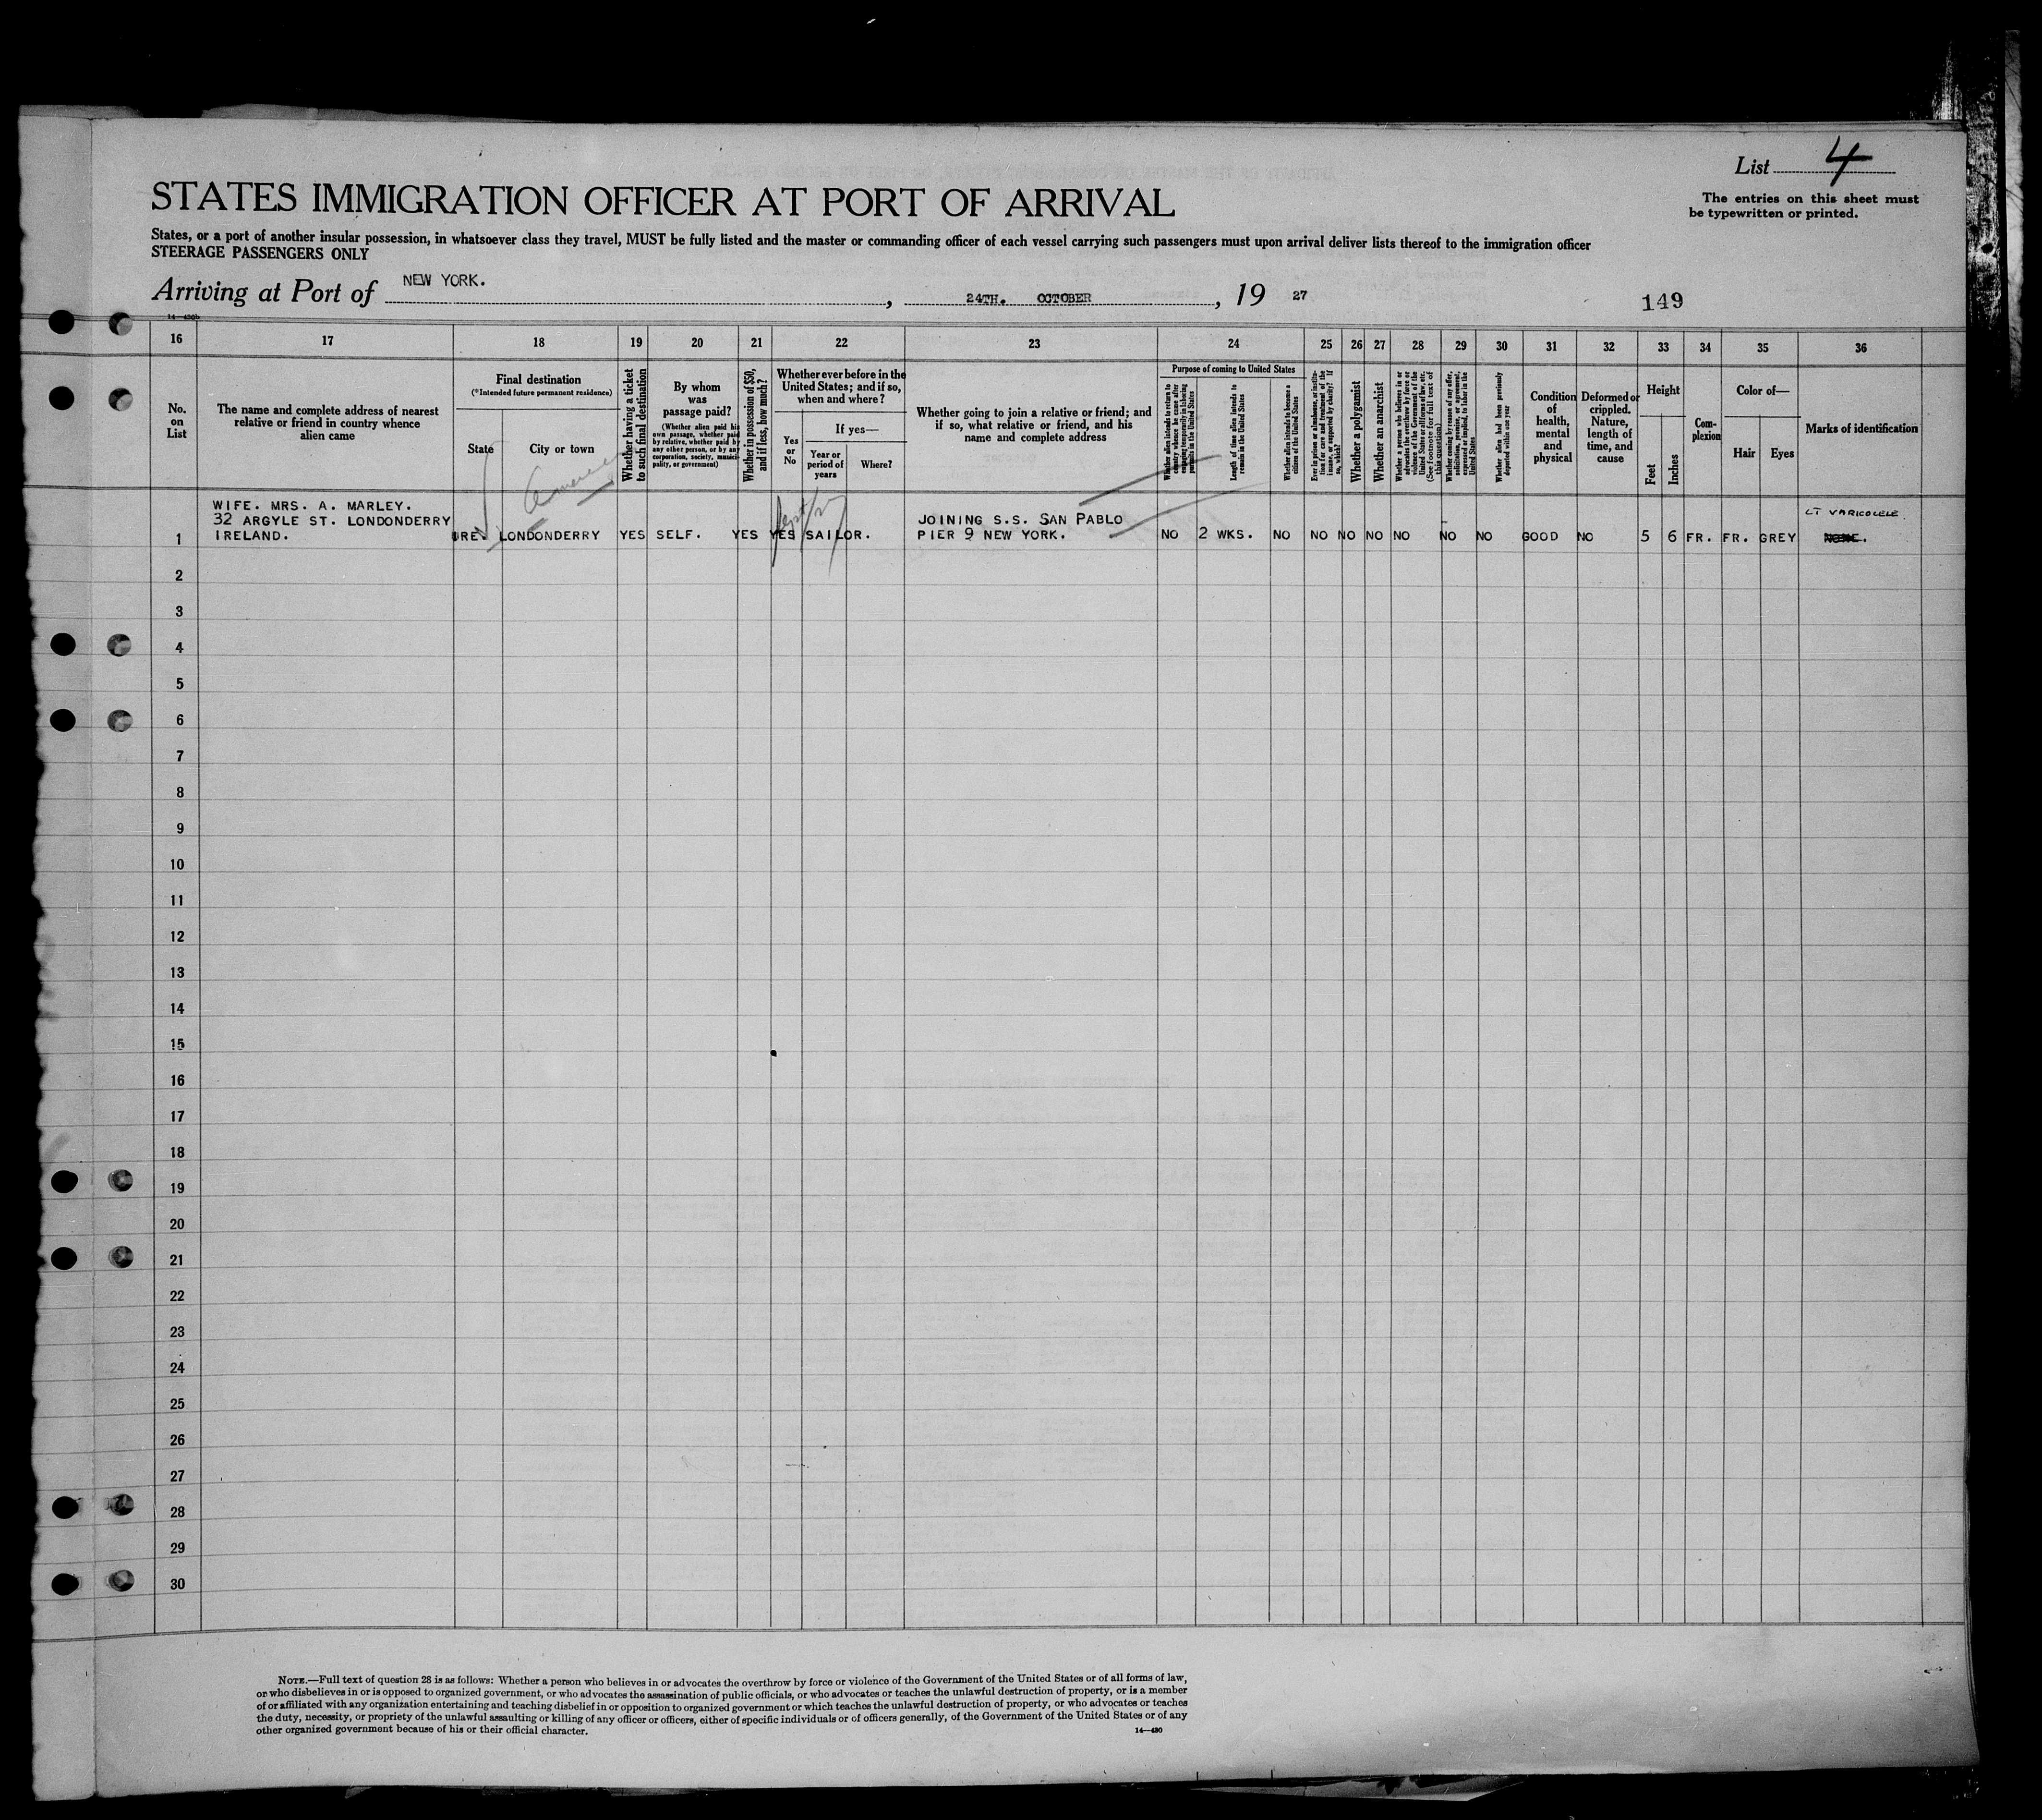 List 4
The entries on this sheet must
be typewritten or printed.
STATES IMMIGRATION OFFICER AT PORT OF ARRIVAL
States, or a port of another insular possession, in whatsoever class they travel, MUST be fully listed and the master or commanding officer of each vessel carrying such passengers must upon arrival deliver lists thereof to the immigration officer
STEERAGE PASSENGERS ONLY
Arriving at Port of NEW YORK. , 24TH. OCTOBER , 19 27
149
14—430b
16 17 18 19 20 21 22 23 24 25 26 27 28 29 30 31 32 33 34 35 36
No.
on
List
The name and complete address of nearest
relative or friend in country whence
alien came
Final destination
(*Intended future permanent residence)
State
City or town
Whether having a ticket
to such final destination
By whom
was
passage paid?
(Whether alien paid his
own passage, whether paid
by relative, whether paid by
any other person, or by any
corporation, society, munici-
pality, or government)
Whether in possession of $50,
and if less, how much?
Whether ever before in the
United States; and if so,
when and where?
Yes
or
No
If yes—
Year or
period of
years
Where?
Whether going to join a relative or friend; and
if so, what relative or friend, and his
name and complete address
Purpose of coming to United States
Whether alien intends to return to
country whence he came after
engaging temporarily in laboring
pursuits in the United States
Length of time alien intends to
remain in the United States
Whether alien intends to become a
citizen of the United States
Ever in prison or almshouse, or institu-
tion for care and treatment of the
insane, or supported by charity? If
so, which?
Whether a polygamist
Whether an anarchist
Whether a person who believes in or
advocates the overthrow by force or
violence of the Government of the
United States or all forms of law, etc.
(See footnote for full text of
this question)
Whether coming by reason of any offer,
solicitation, promise, or agreement,
expressed or implied, to labor in the
United States
Whether alien had been previously
deported within one year
Condition
of
health,
mental
and
physical
Deformed or
crippled.
Nature,
length of
time, and
cause
Height
Feet
Inches
Com-
plexion
Color of—
Hair
Eyes
Marks of identification
WIFE. MRS. A. MARLEY.
32 ARGYLE ST. LONDONDERRY
IRELAND.
1 IRE. LONDONDERRY YES SELF. YES YES SAILOR.
JOINING S.S. SAN PABLO
PIER 9 NEW YORK.
NO 2 WKS. NO NO NO NO NO NO NO GOOD NO 5 6 FR. FR. GREY
LT VARICOCELE.
NONE.
2
3
4
5
6
7
8
9
10
11
12
13
14
15
16
17
18
19
20
21
22
23
24
25
26
27
28
29
30
NOTE.—Full text of question 28 is as follows: Whether a person who believes in or advocates the overthrow by force or violence of the Government of the United States or of all forms of law,
or who disbelieves in or is opposed to organized government, or who advocates the assassination of public officials, or who advocates or teaches the unlawful destruction of property, or is a member
of or affiliated with any organization entertaining and teaching disbelief in or opposition to organized government or which teaches the unlawful destruction of property, or who advocates or teaches
the duty, necessity, or propriety of the unlawful assaulting or killing of any officer or officers, either of specific individuals or of officers generally, of the Government of the United States or of any
other organized government because of his or their official character.
14—430